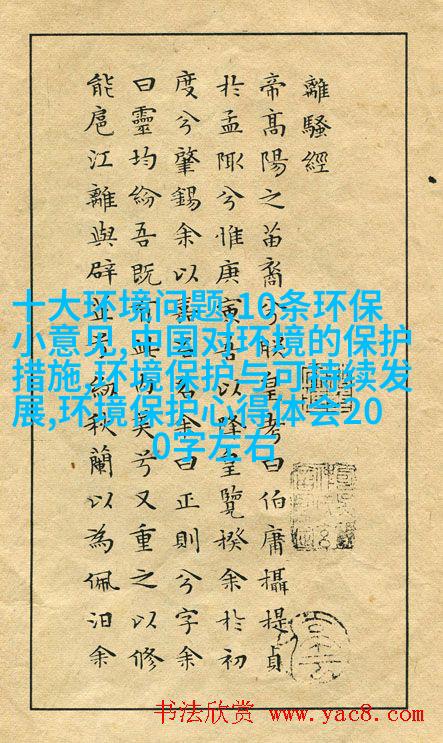 離騷經
帝高陽之苗裔兮朕皇考曰伯庸攝提貞
於孟陬兮惟庚寅吾以降皇覽揆余於初
度兮肇錫余以嘉名名余曰正則兮字余
曰靈均紛吾既有此內美兮又重之以修
能扈江離與辟芷兮紉秋蘭以為佩汨余
十大环境问题,10条环保
小意见,中国对环境的保护
措施,环境保护与可持续发
展,环境保护心得体会20
0字左右
书法欣赏 www.yac8.com